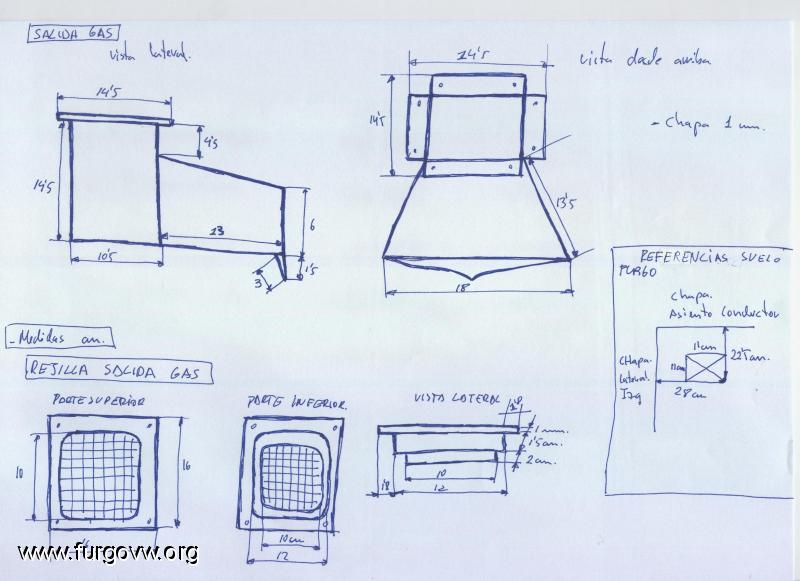 SALIDA GAS
vista lateral.
14'5
4'5
14'5
13
6
10'5
1'5
3
14'5
vista desde arriba
14'5
- Chapa 1 mm.
13'5
18
REFERENCIAS SUELO
FURGO
Chapa.
Asiento Conductor
Chapa.
lateral.
Izq
11cm
11cm
28cm
- Medidas cm.
REJILLA SALIDA GAS
PARTE SUPERIOR
10
16
PARTE INFERIOR.
10cm
12
VISTA LATERAL
1 mm.
1'5cm.
2cm.
10
12
www.furgovw.org